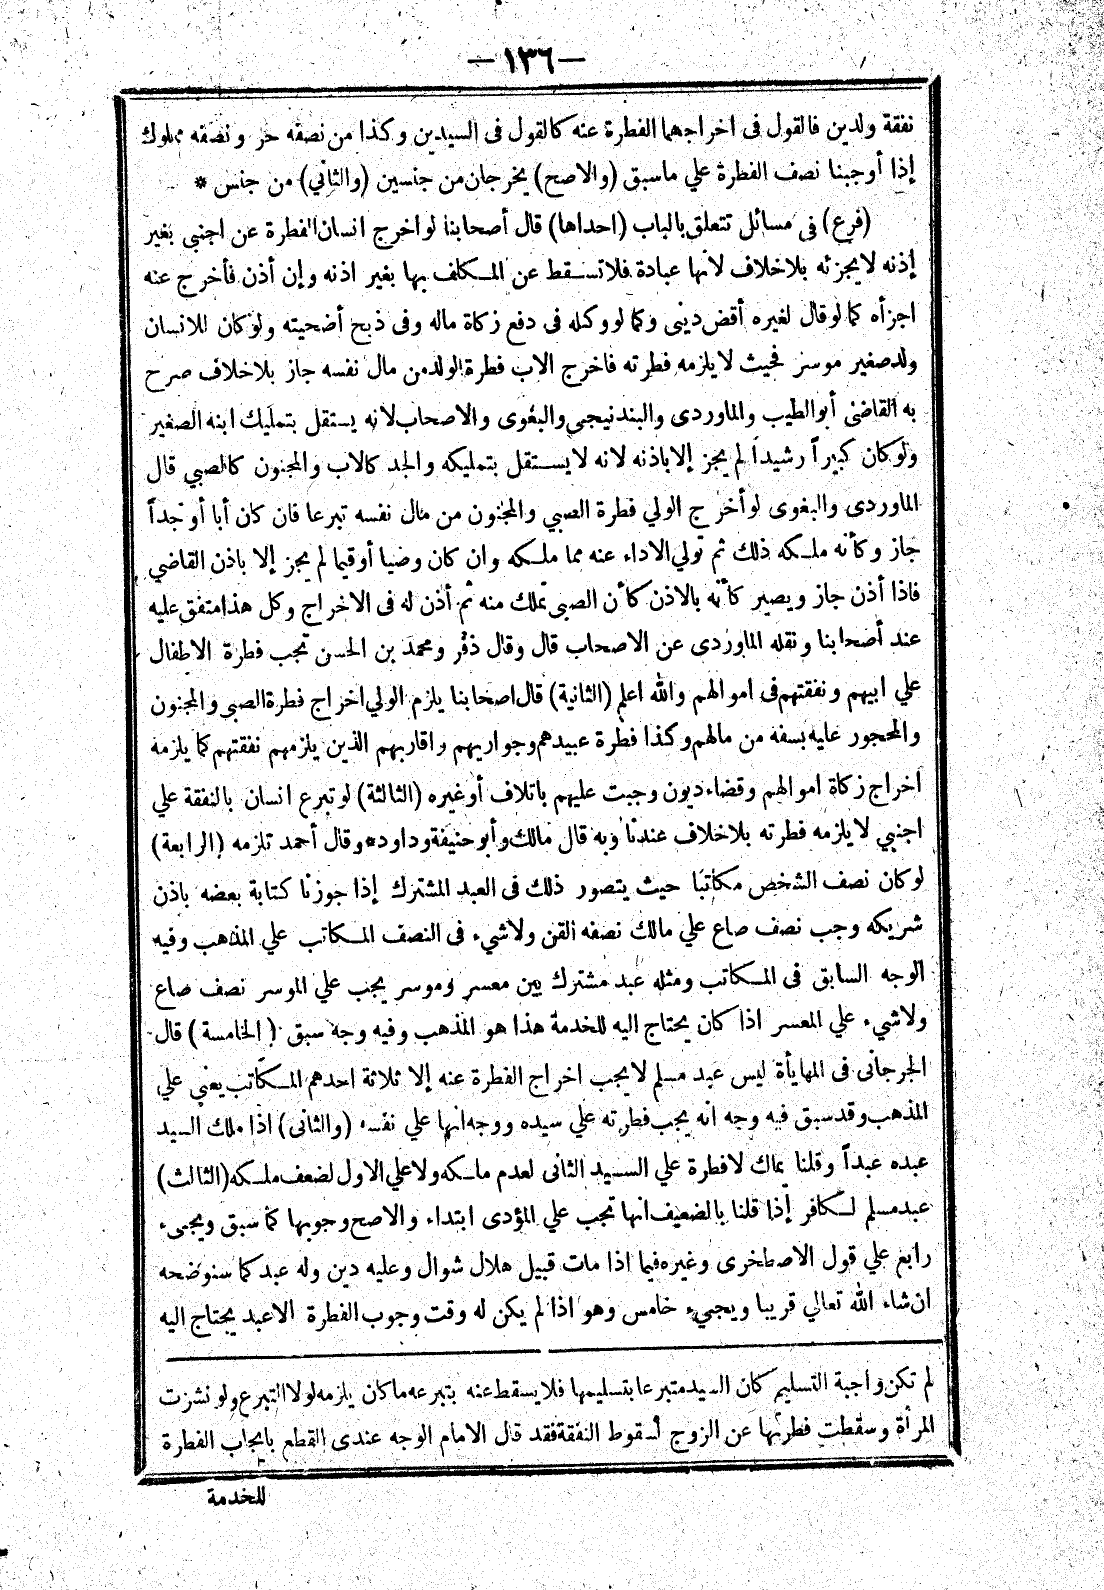 — ١٣٦ —
نفقة ولدين فالقول فى اخراجهما الفطرة عنه كالقول فى السيدين وكذا من نصفه حر ونصفه مملوك
إذا أوجبنا نصف الفطرة علي ماسبق (والاصح) يخرجان من جنسين (والثاني) من جنس *
(فرع) فى مسائل تتعلق بالباب (احداها) قال أصحابنا لو اخرج انسان الفطرة عن اجنبي بغير
إذنه لايجزئه بلاخلاف لانها عبادة فلاتسقط عن المكلف بها بغير اذنه وإن أذن فأخرج عنه
اجزأه كما لو قال لغيره أقض دينى وكما لو وكله فى دفع زكاة ماله وفى ذبح أضحيته ولو كان للانسان
ولد صغير موسر فحيث لايلزمه فطرته فاخرج الاب فطرة الولد من مال نفسه جاز بلاخلاف صرح
به القاضى أبو الطيب والماوردى والبندنيجي والبغوى والاصحاب لانه يستقل بتمليك ابنه الصغير
ولو كان كبيراً رشيداً لم يجز إلا باذنه لانه لايستقل بتمليكه والجد كالاب والمجنون كالصبي قال
الماوردى والبغوى لو أخرج الولي فطرة الصبي والمجنون من مال نفسه تبرعا فان كان أبا أو جداً
جاز وكأنه ملكه ذلك ثم تولي الاداء عنه مما ملكه وان كان وصيا أوقيما لم يجز إلا باذن القاضي
فاذا أذن جاز ويصير كأنه بالاذن كأن الصبى تملك منه ثم أذن له فى الاخراج وكل هذا متفق عليه
عند أصحابنا ونقله الماوردى عن الاصحاب قال وقال زفر ومحمد بن الحسن تجب فطرة الاطفال
علي ابيهم ونفقتهم فى اموالهم والله اعلم (الثانية) قال اصحابنا يلزم الولي اخراج فطرة الصبى والمجنون
والمحجور عليه بسفه من مالهم وكذا فطرة عبيدهم وجواريهم واقاربهم الذين يلزمهم نفقتهم كما يلزمه
اخراج زكاة اموالهم وقضاء ديون وجبت عليهم باتلاف أوغيره (الثالثة) لو تبرع انسان بالنفقة علي
اجنبي لايلزمه فطرته بلاخلاف عندنا وبه قال مالك وأبو حنيفة وداود* وقال أحمد تلزمه (الرابعة)
لو كان نصف الشخص مكاتبا حيث يتصور ذلك فى العبد المشترك إذا جوزنا كتابة بعضه باذن
شريكه وجب نصف صاع علي مالك نصفه القن ولاشيء فى النصف المكاتب علي المذهب وفيه
الوجه السابق فى المكاتب ومثله عبد مشترك بين معسر وموسر يجب علي الموسر نصف صاع
ولاشيء علي المعسر اذا كان يحتاج اليه للخدمة هذا هو المذهب وفيه وجه سبق (الخامسة) قال
الجرجانى فى المهايأة ليس عبد مسلم لايجب اخراج الفطرة عنه إلا ثلاثة احدهم المكاتب يعنى علي
المذهب وقد سبق فيه وجه انه يجب فطرته علي سيده ووجه انها علي نفسه (والثانى) اذا ملك السيد
عبده عبداً وقلنا يملك لافطرة علي السيد الثانى لعدم ملكه ولاعلي الاول لضعف ملكه (الثالث)
عبد مسلم لكافر إذا قلنا بالضعيف انها تجب علي المؤدى ابتداء والاصح وجوبها كما سبق ويجىء
رابع علي قول الاصطخرى وغيره فيما اذا مات قبيل هلال شوال وعليه دين وله عبد كما سنوضحه
ان شاء الله تعالي قريبا ويجيء خامس وهو اذا لم يكن له وقت وجوب الفطرة الاعبد يحتاج اليه
لم تكن واجبة التسليم كان السيد متبرعا بتسليمها فلايسقط عنه بتبرعه ماكان يلزمه لولا التبرع ولو نشزت
المرأة وسقطت فطرتها عن الزوج لسقوط النفقة فقد قال الامام الوجه عندى القطع بايجاب الفطرة
للخدمة